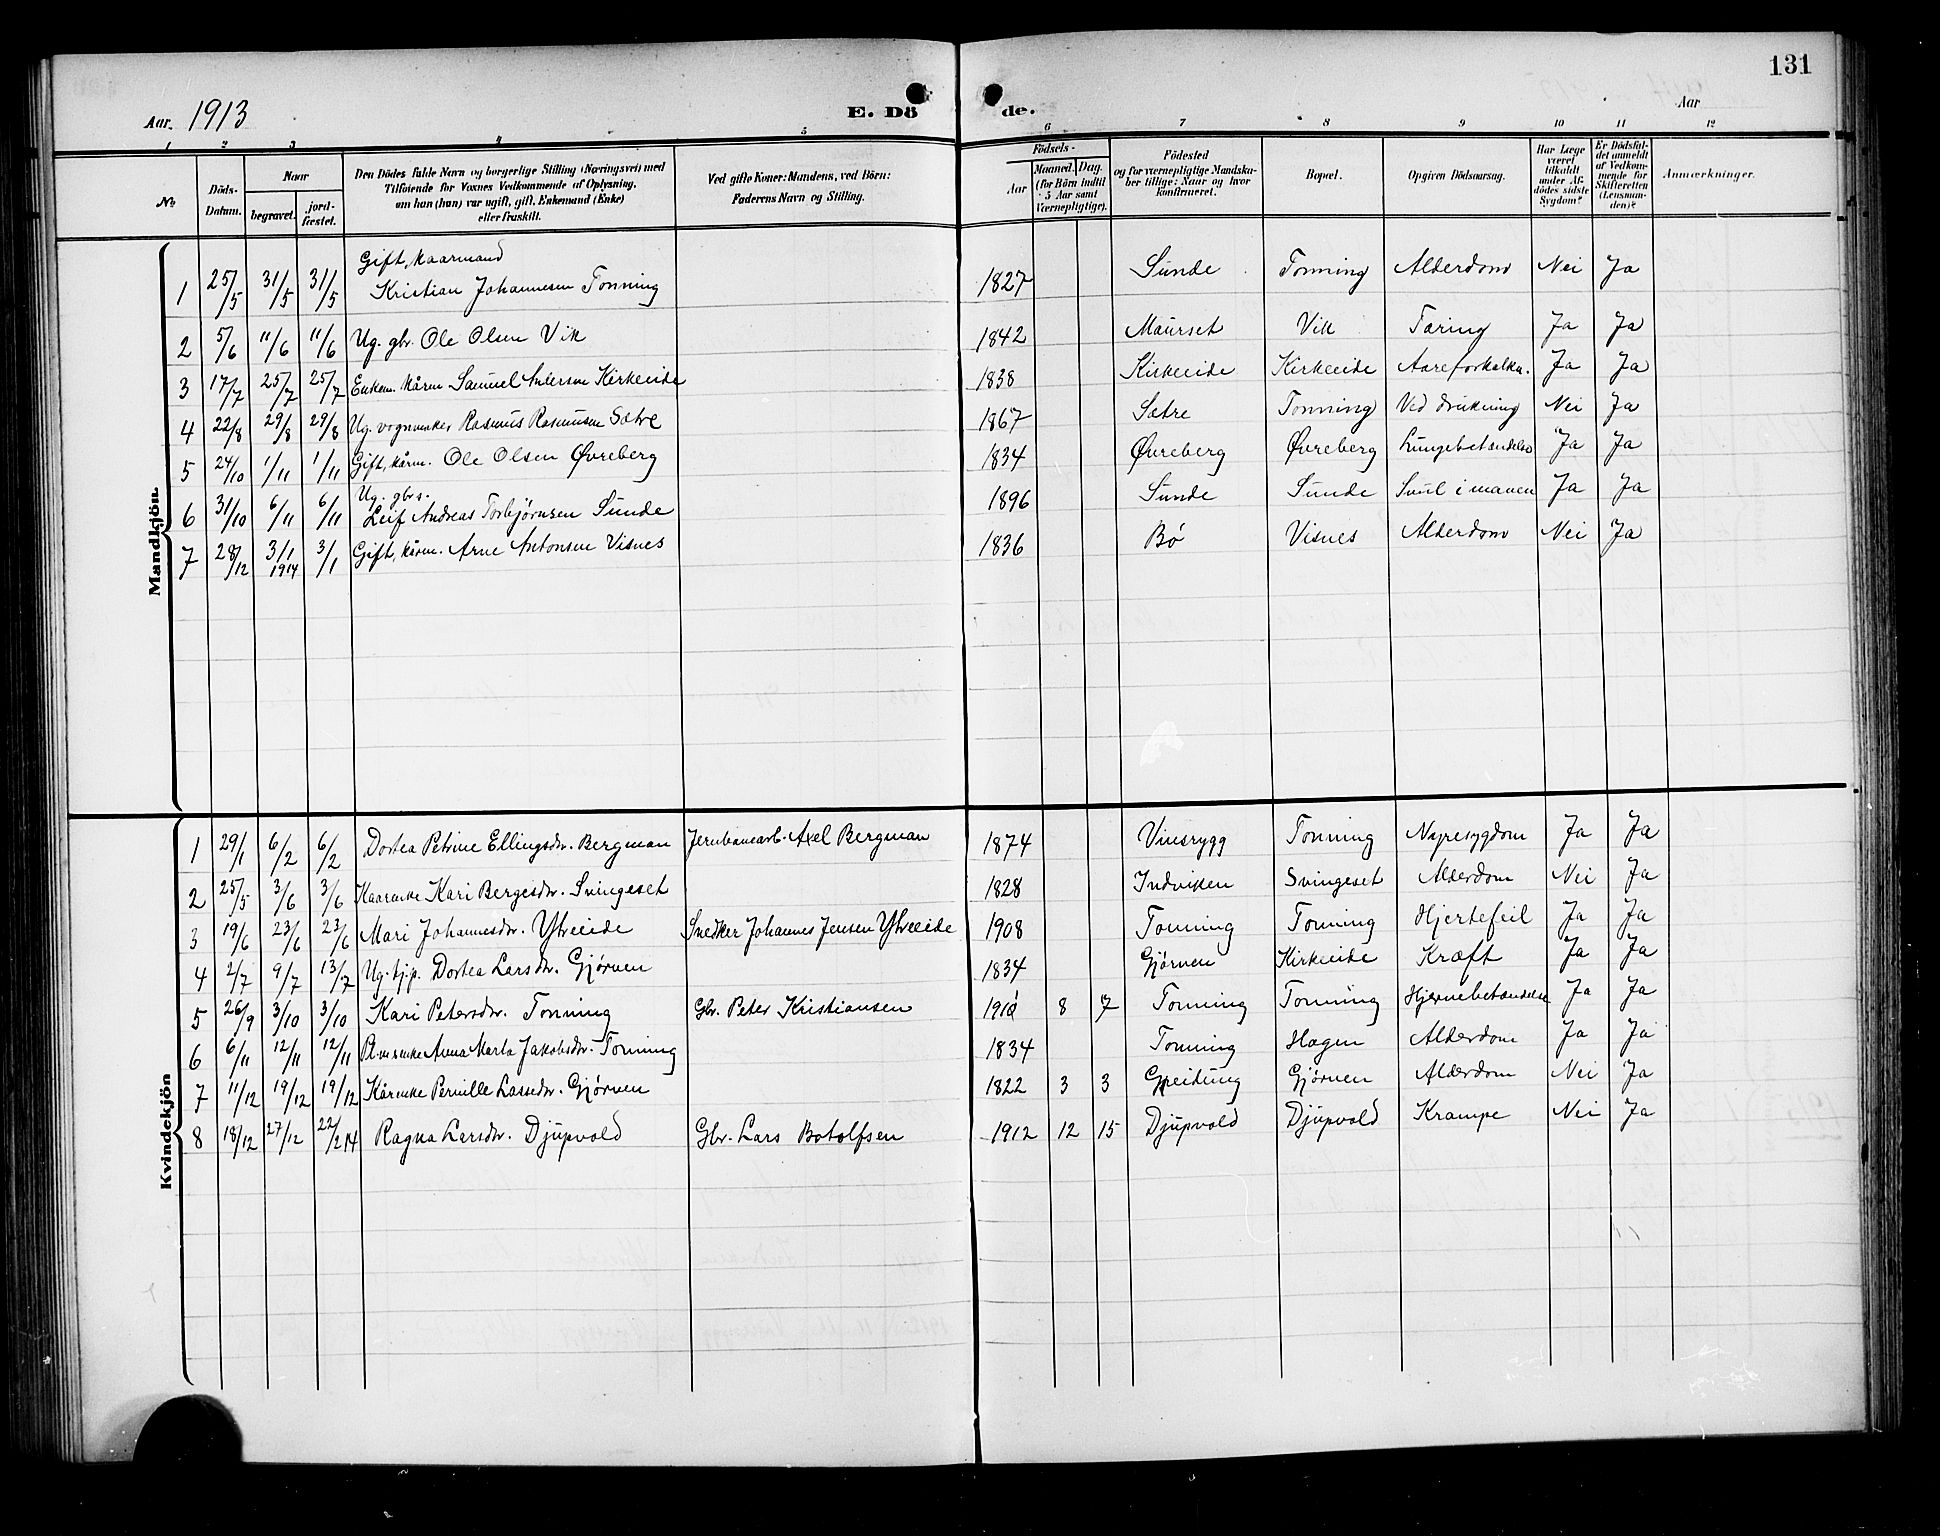 131
Aar. 1913 E. Dö de. Aar
1 2 3 4 5 6 7 8 9 10 11 12
No
Döds-Datum.
Naar
begravet.
jord-fæstet.
Den Dödes fulde Navn og borgerlige Stilling (Næringsvei) med
Tilföiende for Voxnes Vedkommende af Oplysning,
om han (hun) var ugift, gift, Enkemand (Enke)
eller fraskilt.
Ved gifte Koner: Mandens, ved Börn:
Faderens Navn og Stilling.
Födsels-
Aar
Maaned. Dag.
(for Börn indtil
5 Aar samt
Værnepligtige).
Födested
og for værnepligtige Mandska-
ber tillige: Naar og hvor
konfirmeret.
Bopæl.
Opgiven Dödsaarsag.
Har Læge
været
tilkaldt
under Af-
dødes sidste
Sygdom?
Er Dödsfal-
det anmeldt
af Vedkom-
mende for
Skifteretten
(Lensman-
den)?
Anmærkninger.
Mandkjön.
Gift, kaarmand
1 25/5 31/5 31/5 Kristian Johannesen Tonning 1827 Sunde Tonning Alderdom Nei Ja
2 5/6 11/6 11/6 Ug. gbr. Ole Olsen Vik 1842 Maurset Vik Tæring Ja Ja
3 17/7 25/7 25/7 Enkem. kårm Samuel Andersen Kirkeeide 1838 Kirkeeide Kirkeeide Aareforkalkn. Ja Ja
4 22/8 29/8 29/8 Ug. vognmaker Rasmus Rasmusen Sætre 1867 Sætre Tonning Ved drukning Nei Ja
5 24/10 1/11 1/11 Gift, kårm. Ole Olsen Øvreberg 1834 Øvreberg Øvreberg Lungebetændelse Ja Ja
Ug. gbrs.
6 31/10 6/11 6/11 Leif Andreas Torbjørnsen Sunde 1896 Sunde Sunde Svul i maven Ja Ja
7 28/12 3/1 1914 3/1 Gift, kårm. Arne Antonsen Visnes 1836 Bø Visnes Alderdom Nei Ja
Kvindekjön
1 29/1 6/2 6/2 Dortea Petrine Ellingsdtr. Bergman Jernbanearb. Axel Bergman 1874 Vinsrygg Tonning Nyresygdom Ja Ja
2 25/5 3/6 3/6 Kaarenke Kari Bergesdtr. Svingeset 1828 Indviken Svingeset Alderdom Nei Ja
3 19/6 23/6 23/6 Mari Johannesdtr. Ytreeide Snedker Johannes Jensen Ytreeide 1908 Tonning Tonning Hjertefeil Ja Ja
4 2/7 9/7 13/7 Ug. tjp. Dortea Larsdtr. Gjørven 1834 Gjørven Kirkeeide Kræft Ja Ja
5 26/9 3/10 3/10 Kari Petersdtr. Tonning Gbr. Peter Kristiansen 1910 8 7 Tonning Tonning Hjernebetændelse Ja Ja
6 6/11 12/11 12/11 Anna Marta Jakobsdtr. Tonning 1834 Tonning Hagen Alderdom Ja Ja
7 11/12 19/12 19/12 Kårenke Pernille Lassedtr. Gjørven 1822 3 3 Greidung Gjørven Alderdom Nei Ja
8 18/12 27/12 22/2 14 Ragna Larsdtr. Djupvold Gbr. Lars Botolfsen 1912 12 15 Djupvold Djupvold Krampe Nei Ja